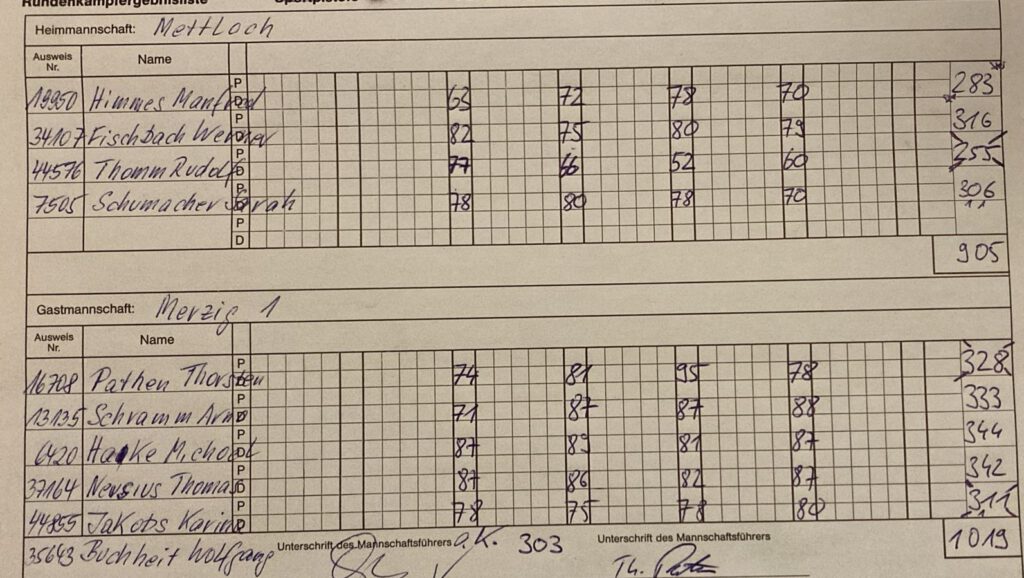 Rundenkampfergebnisliste Sportpistole
Heimmannschaft: Mettloch
Ausweis Nr. Name
19950 Himmes Manfred P D 63 72 78 70 283
34107 Fischbach Werner P D 82 75 80 79 316
44576 Thomm Rudolf P D 77 66 52 60 255
7505 Schumacher Sarah P D 78 80 78 70 306
P D
905
Gastmannschaft: Merzig 1
Ausweis Nr. Name
16708 Pathen Thorsten P D 74 81 95 78 328
13135 Schramm Arno P D 71 87 87 88 333
6420 Haake Michael P D 87 89 81 87 344
37164 Nersius Thomas P D 87 86 82 87 342
44855 Jakobs Karina P D 78 75 78 80 311
35643 Buchheit Wolfgang a.K. 303
Unterschrift des Mannschaftsführers Unterschrift des Mannschaftsführers
1019